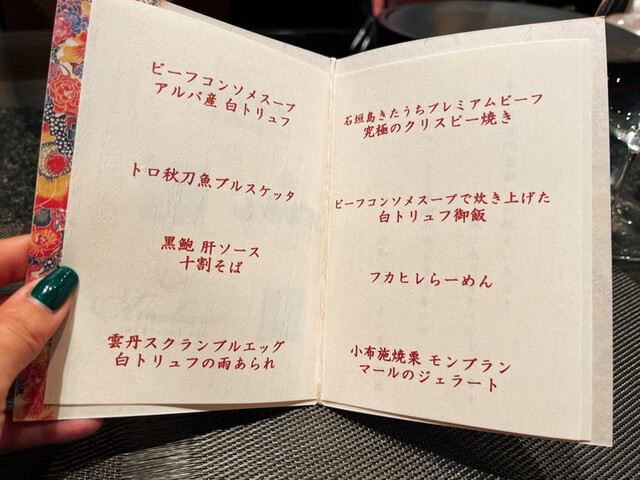 ビーフコンソメスープ
アルバ産 白トリュフ
トロ秋刀魚ブルスケッタ
黒鮑 肝ソース
十割そば
雲丹スクランブルエッグ
白トリュフの雨あられ
石垣島きたうちプレミアムビーフ
究極のクリスピー焼き
ビーフコンソメスープで炊き上げた
白トリュフ御飯
フカヒレらーめん
小布施焼栗 モンブラン
マールのジェラート